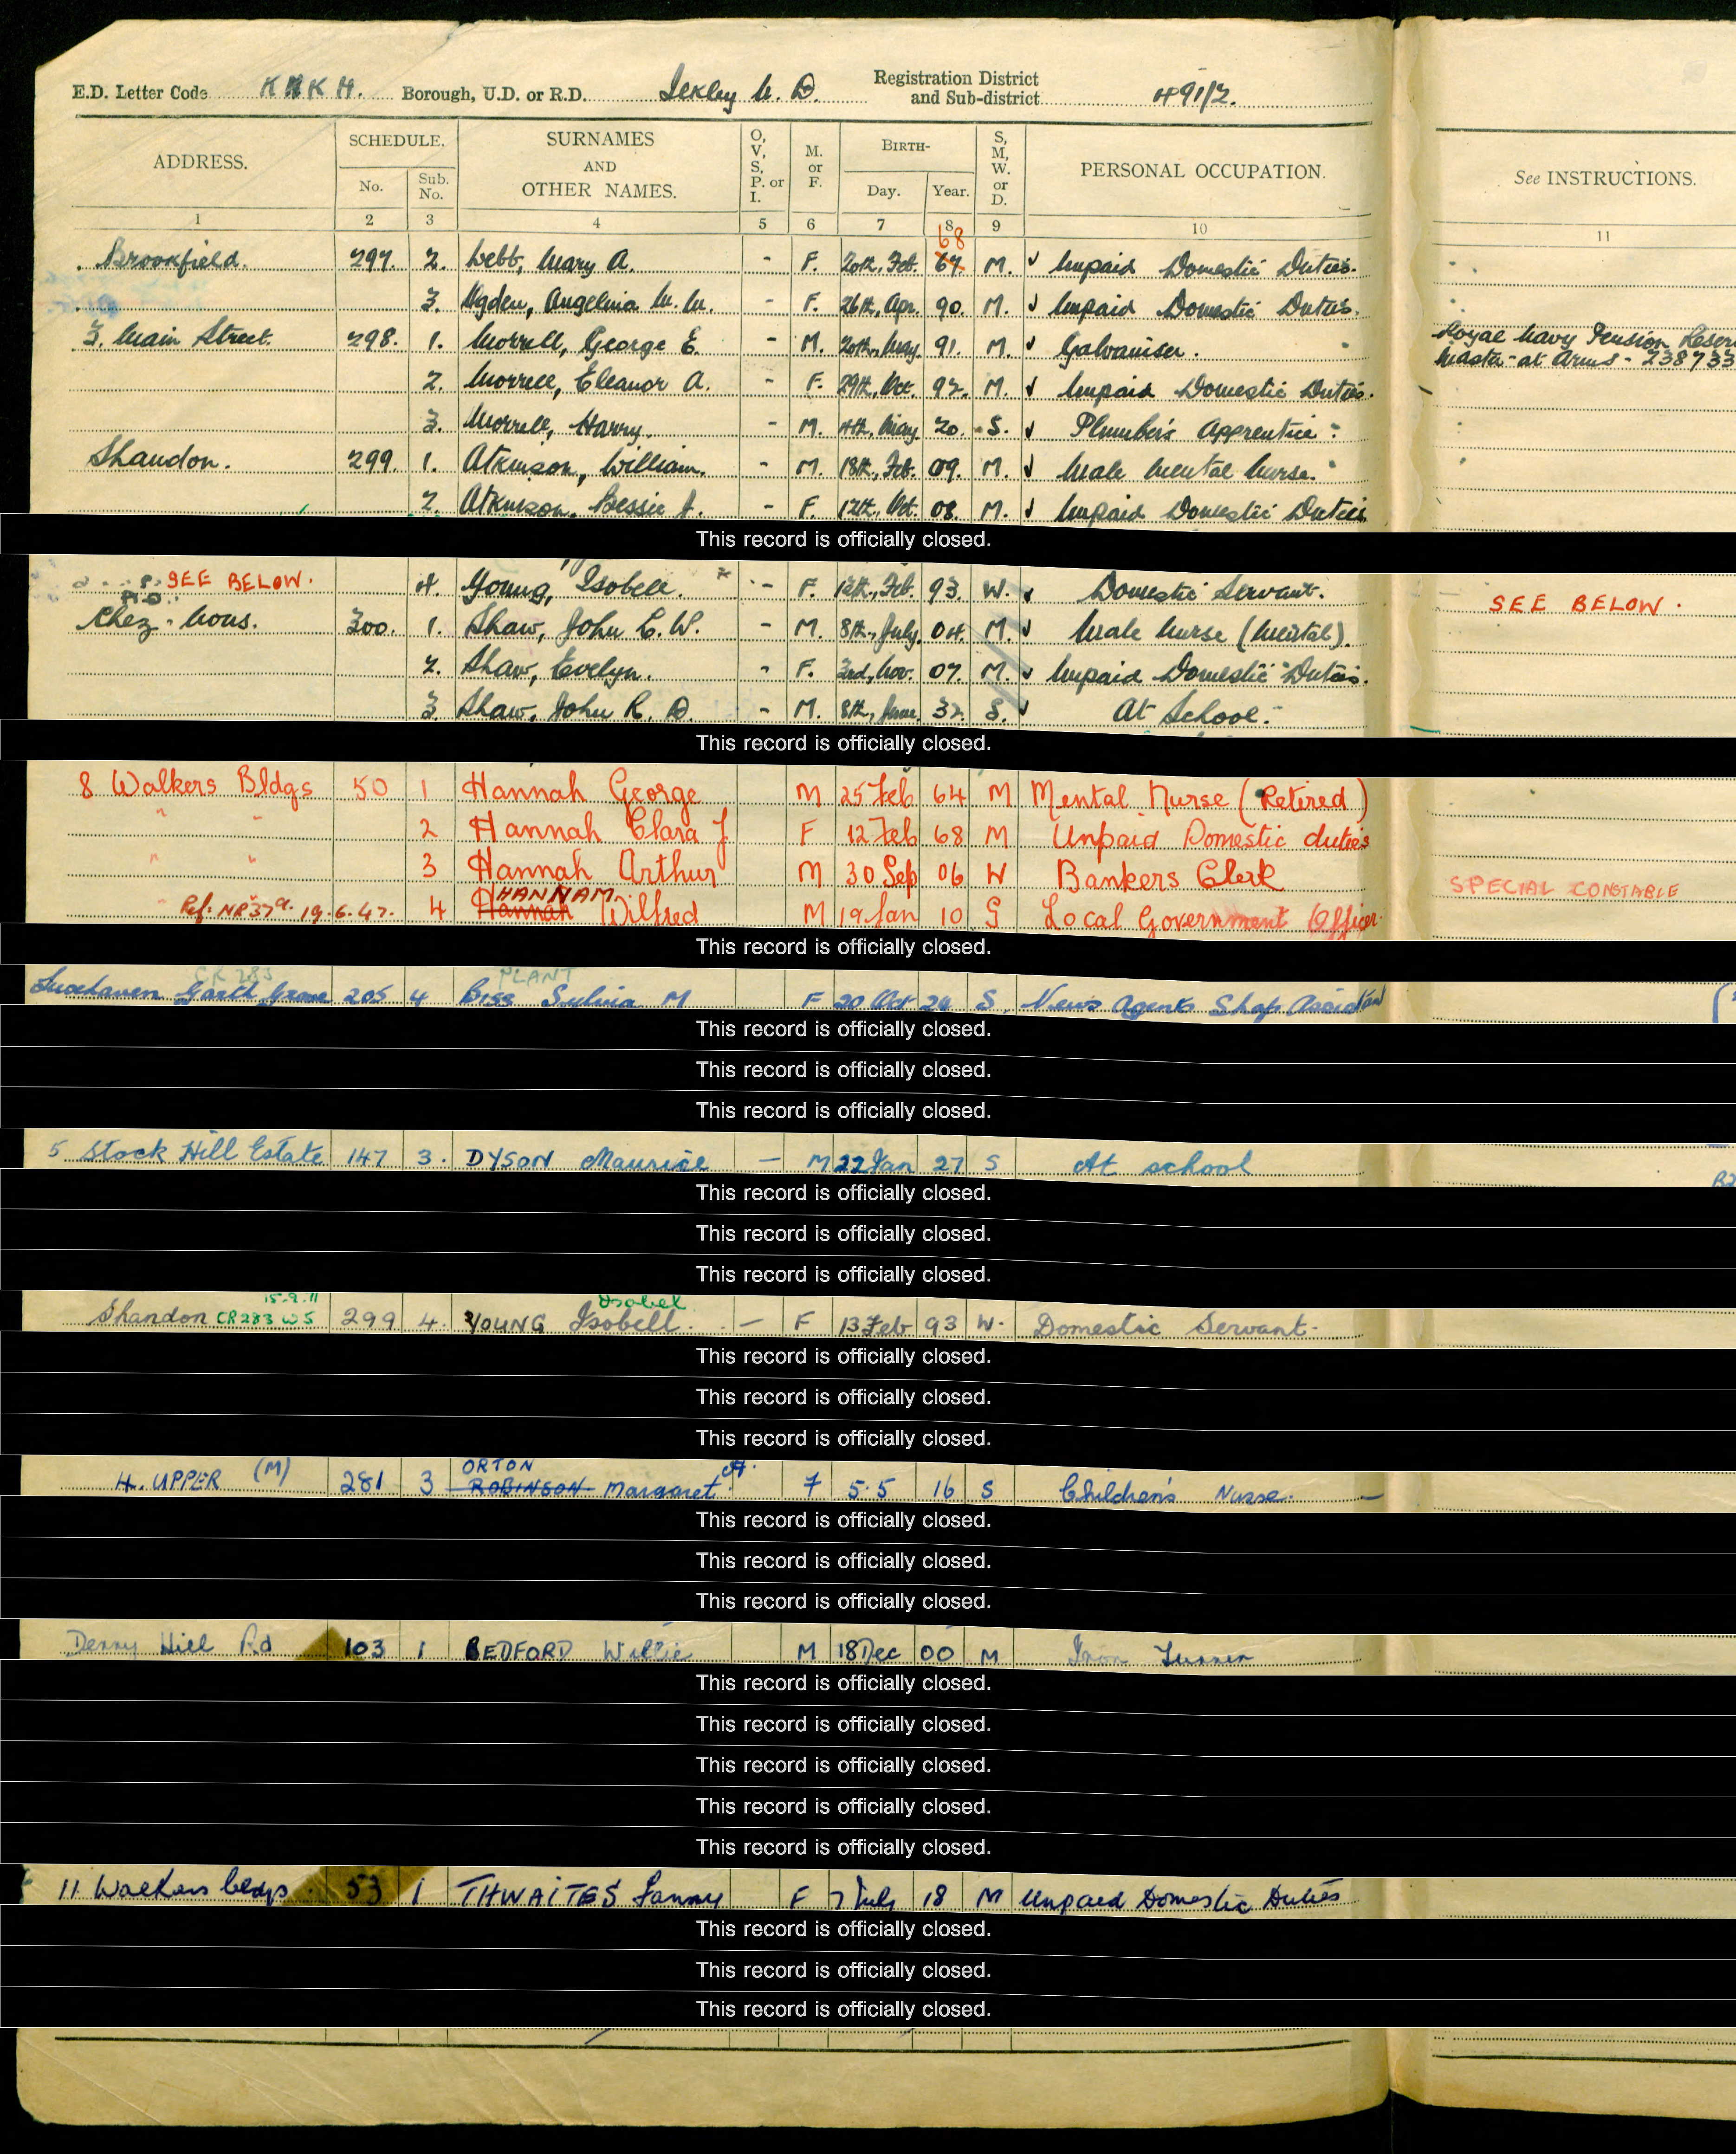 E.D. Letter Code K R K H. Borough, U.D. or R.D. Ilkley U. D. Registration District and Sub-district 491/2.
ADDRESS. SCHEDULE. No. Sub. No. SURNAMES AND OTHER NAMES. O, V, S, P. or I. M. or F. BIRTH- Day. Year. S, M, W. or D. PERSONAL OCCUPATION. See INSTRUCTIONS.
1 2 3 4 5 6 7 8 9 10 11
68
Brookfield. 297. 2. Webb, Mary A. - F. 20th, Feb. 67 M. ✓ Unpaid Domestic Duties.
3. Ogden, Angelina M. M. - F. 26th, Apr. 90. M. ✓ Unpaid Domestic Duties.
3. Main Street. 298. 1. Morrell, George E. - M. 20th, May. 91. M. ✓ Galvaniser. Royal Navy Pension Reser
Master-at Arms - 238733
2. Morrell, Eleanor A. - F. 29th, Oct. 92. M. ✓ Unpaid Domestic Duties.
3. Morrell, Harry. - M. 4th, May. 20. S. ✓ Plumber's Apprentice.
Shandon. 299. 1. Atkinson, William. - M. 18th, Feb. 09. M. ✓ Male Mental Nurse.
2. Atkinson, Bessie A. - F. 12th, Oct. 08. M. ✓ Unpaid Domestic Duties
This record is officially closed.
SEE BELOW. 4. Young, Isobell. - F. 12th, Feb. 93. W. ✓ Domestic Servant. SEE BELOW.
Chez-Nous. 300. 1. Shaw, John L. W. - M. 8th, July. 04. M. ✓ Male Nurse (Mental).
2. Shaw, Evelyn. - F. 3rd, Nov. 07. M. ✓ Unpaid Domestic Duties.
3. Shaw, John R. D. - M. 8th, June. 32. S. ✓ At School.
This record is officially closed.
8 Walkers Bldgs 50 1 Hannah George M 25 Feb 64 M Mental Nurse (Retired)
" " 2 Hannah Clara J F 12 Feb 68 M Unpaid Domestic duties
" " 3 Hannah Arthur M 30 Sep 06 W Bankers Clerk SPECIAL CONSTABLE
HANNAM
" Ref. NR37a. 19.6.47. 4 Hannah Wilfred M 19 Jan 10 S Local Government Officer
This record is officially closed.
CR 283 PLANT
Garth Grove 205 4 Biss Sylvia M F 20 Oct 24 S News Agents Shop Assistant
This record is officially closed.
This record is officially closed.
This record is officially closed.
5 Stock Hill Estate 147 3. DYSON Maurice — M 22 Jan 27 S At school
This record is officially closed.
This record is officially closed.
This record is officially closed.
Isobel
Shandon CR283 W5 299 4. YOUNG Isobell. — F 13 Feb 93 W. Domestic Servant.
This record is officially closed.
This record is officially closed.
This record is officially closed.
ORTON
H. UPPER (M) 281 3 ROBINSON Margaret A. F 5.5 16 S Children's Nurse. —
This record is officially closed.
This record is officially closed.
This record is officially closed.
Denny Hill Rd 103 1 BEDFORD Willie M 18 Dec 00 M Iron Turner
This record is officially closed.
This record is officially closed.
This record is officially closed.
This record is officially closed.
This record is officially closed.
11 Walkers bldgs. 53 1 THWAITES Fanny F 7 July 18 M Unpaid Domestic Duties
This record is officially closed.
This record is officially closed.
This record is officially closed.